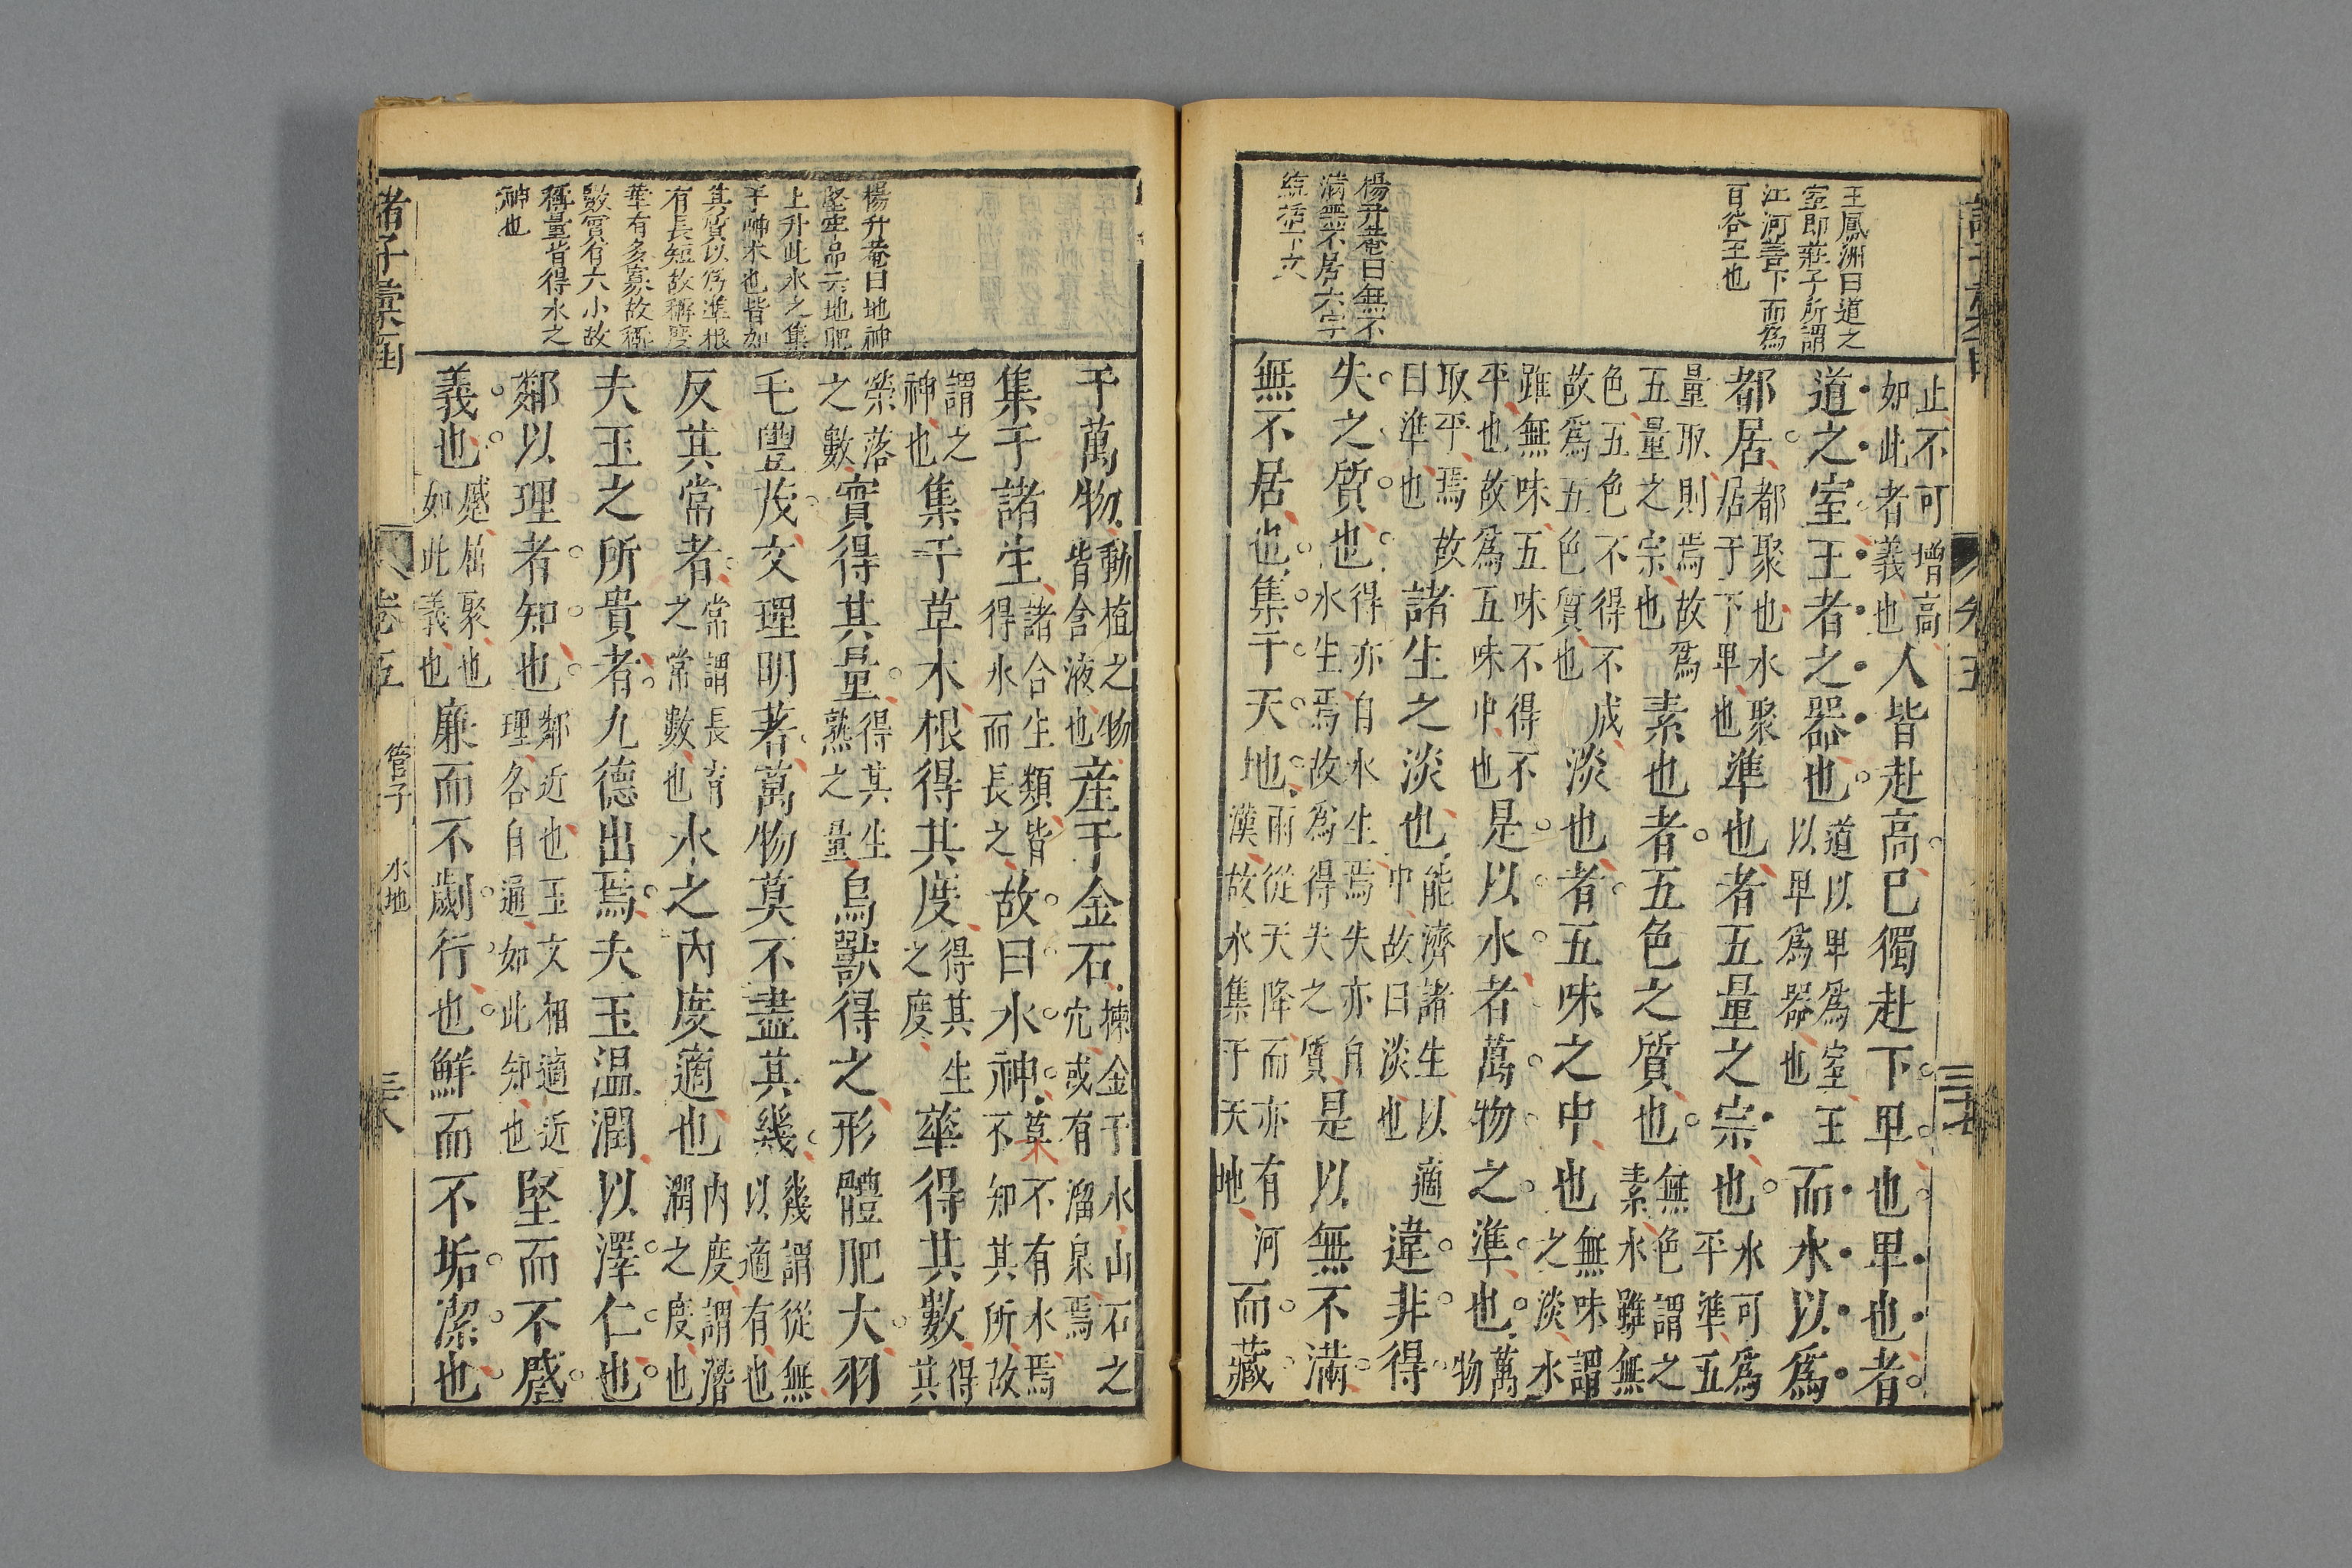 王鳳洲曰道之
室即莊子所謂
江河善下而爲
百谷王也
楊升菴曰無不
滿無不居六字
綜括下文
止不可增高如此者義也人皆赴高已獨赴下卑也卑也者
道之室王者之器也道以卑爲室王以卑爲器也而水以爲
都居都聚也水聚居于下卑也準也者五量之宗也水可爲平準五
量取則焉故爲五量之宗也素也者五色之質也無色謂之素水雖無
色五色不得不成故爲五色質也淡也者五味之中也無味謂之淡水
雖無味五味不得不平也故爲五味中也是以水者萬物之準也萬物
取平焉故曰準也諸生之淡也能濟諸生以適中故曰淡也違非得
失之質也得亦自水生焉失亦自水生焉故爲得失之質是以無不滿
無不居也集于天地雨從天降而亦有河漢故水集于天地而藏
三十七
楊升菴曰地神
堅牢品云地肥
上升此水之集
于草木也皆如
其質以爲準根
有長短故稱度
華有多寡故稱
數實有大小故
稱量皆得水之
神也
于萬物動植之物皆含液也産于金石揀金于水山石之穴或有溜泉焉
集于諸生諸合生類皆得水而長之故曰水神莫不有水焉不知其所故
謂之神也集于草木根得其度得其生之度華得其數得其
榮落之數實得其量得其生熟之量鳥獸得之形體肥大羽
毛豐茂文理明著萬物莫不盡其幾幾謂從無以適有也
反其常者常謂長育之常數也水之內度適也內度謂潛潤之度也
夫玉之所貴者九德出焉夫玉温潤以澤仁也
鄰以理者知也鄰近也玉文相適近理各自通如此知也堅而不蹙
義也蹙屈聚也如此義也廉而不劌行也鮮而不垢潔也
諸子彙函 卷五 管子 水地 三十八